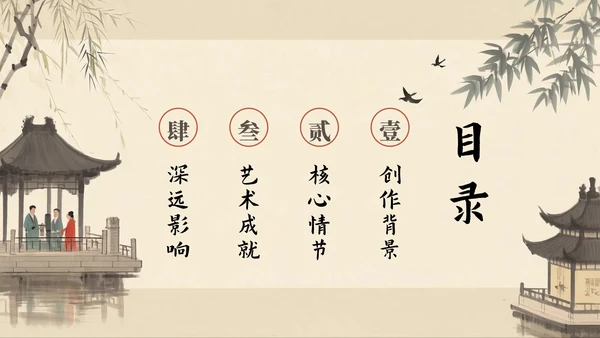 目录
壹
创作背景
贰
核心情节
叁
艺术成就
肆
深远影响